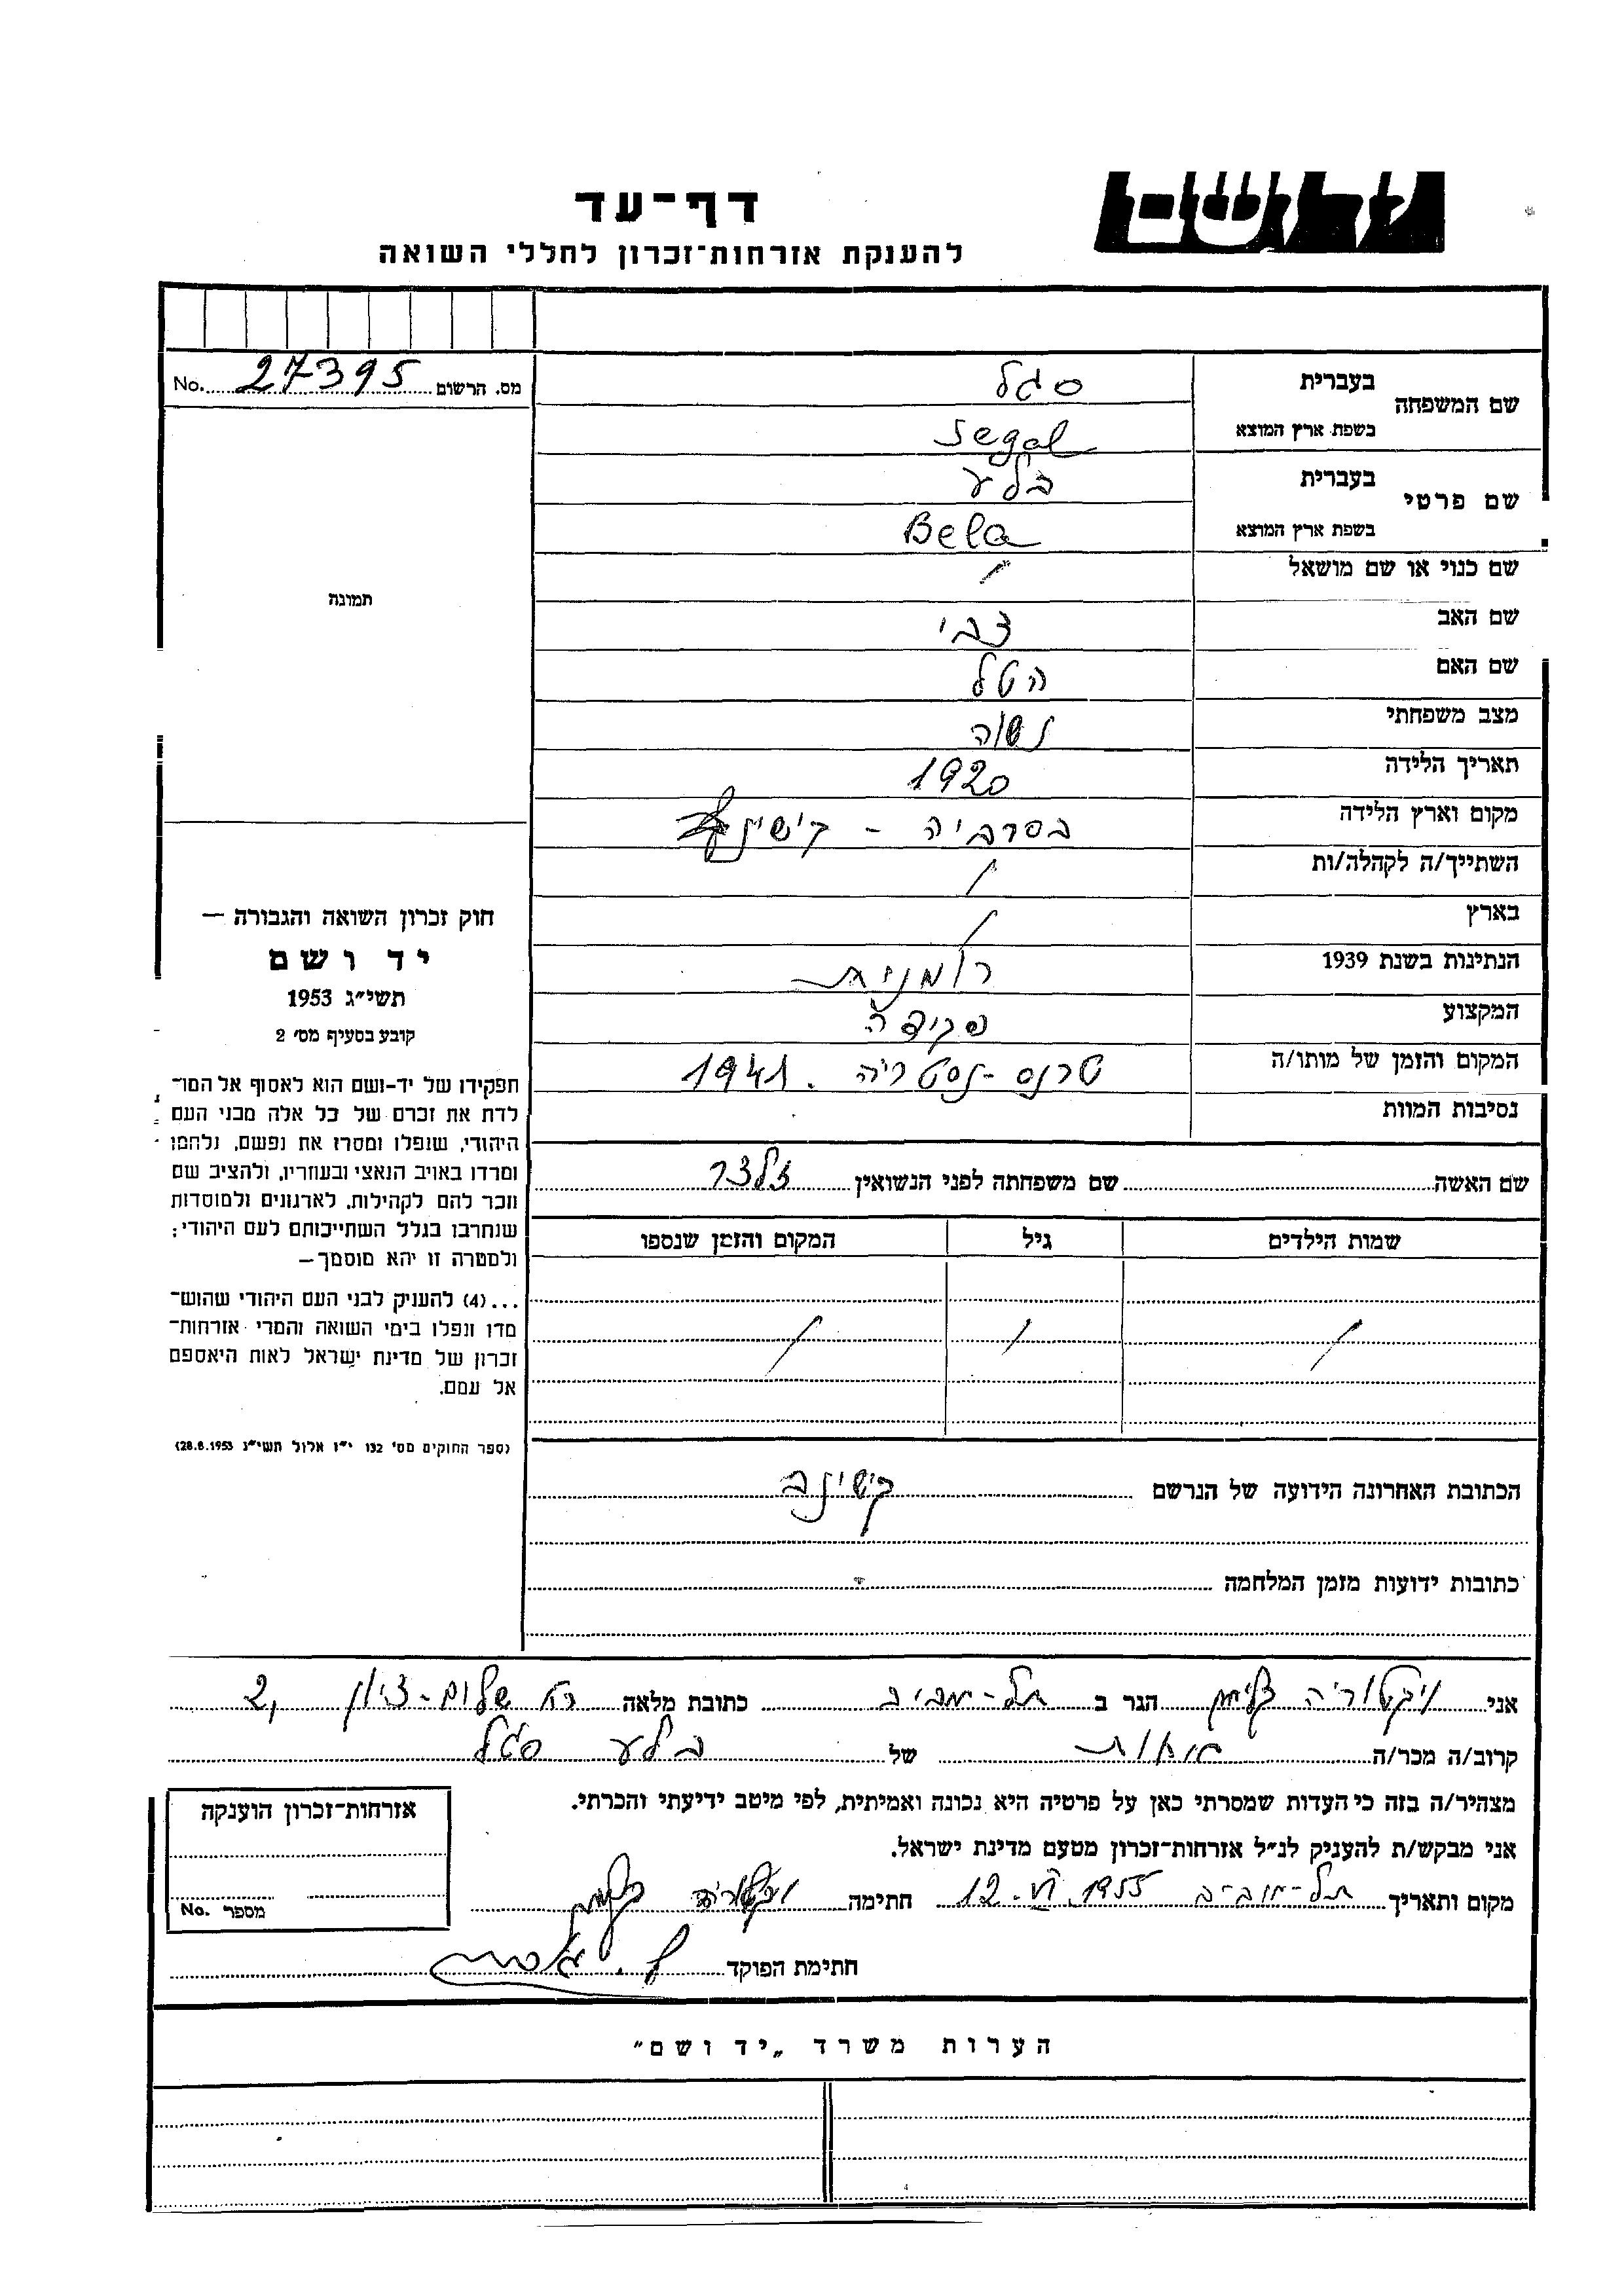 ידושם
דף-עד
להענקת אזרחות-זכרון לחללי השואה
מס. הרשום 27395 No.
שם המשפחה בעברית סגל
בשפת ארץ המוצא Segal
שם פרטי בעברית בלע
בשפת ארץ המוצא Bela
שם כנוי או שם מושאל /
שם האב צבי
שם האם הטל
מצב משפחתי נשוה
תאריך הלידה 1920
מקום וארץ הלידה בסרביה - קישינב
השתייך/ה לקהלה/ות /
בארץ /
הנתינות בשנת 1939 רומנית
המקצוע פקידה
המקום והזמן של מותו/ה טרנס-נסטריה. 1941
נסיבות המוות
שם האשה שם משפחתה לפני הנשואין זלצר
שמות הילדים גיל המקום והזמן שנספו
/ / /
הכתובת האחרונה הידועה של הנרשם קישינב
כתובות ידועות מזמן המלחמה
תמונה
חוק זכרון השואה והגבורה —
יד ושם
תשי״ג 1953
קובע בסעיף מס׳ 2
תפקידו של יד-ושם הוא לאסוף אל המו־
לדת את זכרם של כל אלה מבני העם
היהודי, שנפלו ומסרו את נפשם, נלחמו
ומרדו באויב הנאצי ובעוזריו, ולהציב שם
וזכר להם לקהילות, לארגונים ולמוסדות
שנחרבו בגלל השתייכותם לעם היהודי;
ולמטרה זו יהא מוסמך —
...(4) להעניק לבני העם היהודי שהוש־
מדו ונפלו בימי השואה והמרי אזרחות־
זכרון של מדינת ישראל לאות היאספם
אל עמם.
(ספר החוקים מס׳ 132 י״ז אלול תשי״ג 28.8.1953)
אני ויקטוריה הגר ב תל-אביב כתובת מלאה שלום-ציון 2,
קרוב/ה מכר/ה אחות של בלע סגל
מצהיר/ה בזה כי העדות שמסרתי כאן על פרטיה היא נכונה ואמיתית, לפי מיטב ידיעתי והכרתי.
אני מבקש/ת להעניק לנ״ל אזרחות-זכרון מטעם מדינת ישראל.
מקום ותאריך תל-אביב 12.VI.1955 חתימה ויקטוריה
חתימת הפוקד
אזרחות-זכרון הוענקה
מספר No.
הערות משרד „יד ושם״